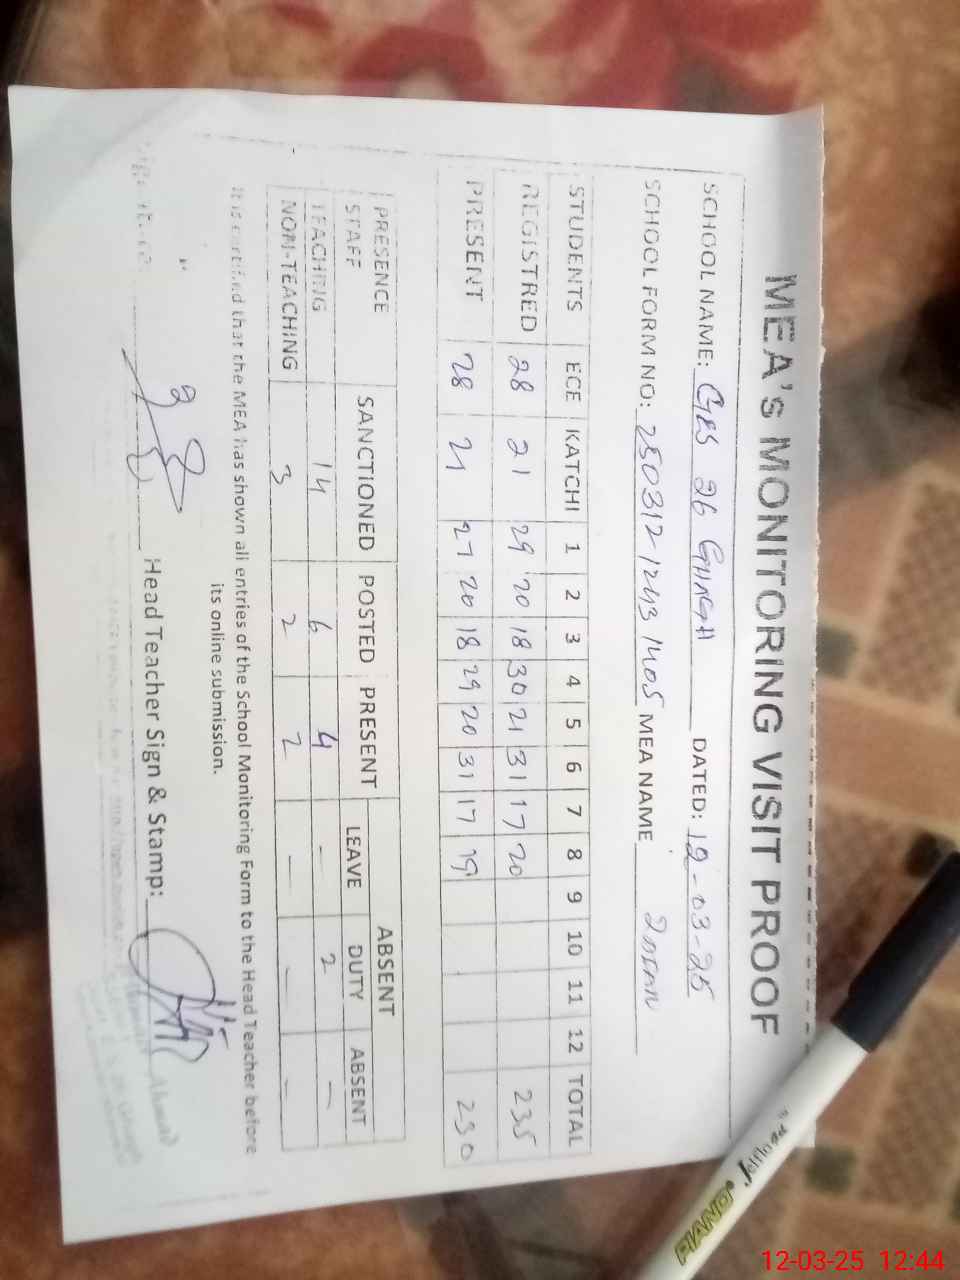 MEA's MONITORING VISIT PROOF
SCHOOL NAME: GES 26 GHAGH DATED: 12-03-25
SCHOOL FORM NO: 250312-1243 1405 MEA NAME
STUDENTS ECE KATCHI 1 2 3 4 5 6 7 8 9 10 11 12 TOTAL
REGISTRED 28 21 29 20 18 30 21 31 17 20 235
PRESENT 28 21 27 20 18 29 20 31 17 19 230
PRESENCE ABSENT
STAFF SANCTIONED POSTED PRESENT LEAVE DUTY ABSENT
TEACHING 14 6 4 - 2 -
NON-TEACHING 3 2 2 - - -
It is certified that the MEA has shown all entries of the School Monitoring Form to the Head Teacher before
its online submission.
Head Teacher Sign & Stamp:
PIANO
12-03-25 12:44